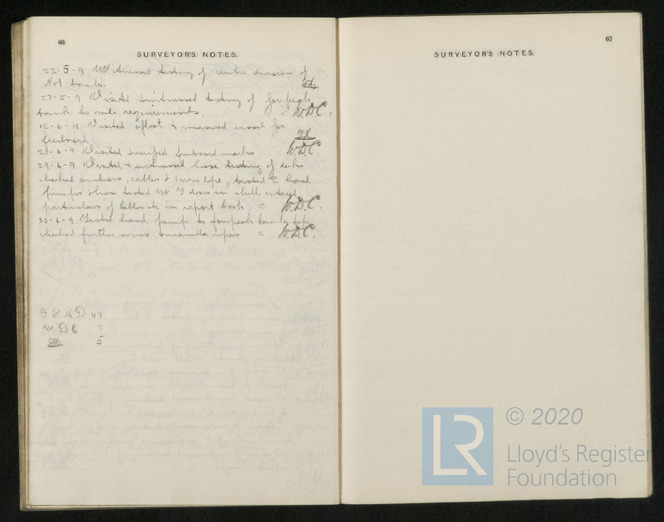 66
SURVEYOR'S NOTES.
22-5-9 Witnessed testing of centre division of
tank.
27-5-9 Visited witnessed testing of forepeak
tank to rule requirements. W.D.C.
12-6-9 Visited afloat & measured vessel for
freeboard
21-6-9 Visited verified freeboard marks W.D.C.
29-6-9 Visited & witnessed hose testing of decks
checked anchors, cables & tested hand
pumps W T doors in shell entered
particulars of in report book. W.D.C.
30-6-9 Tested hand pump to forepeak
checked further W.D.C.
47
W.D.C 7
5
67
SURVEYOR'S NOTES.
© 2020
LR
Lloyd's Register
Foundation